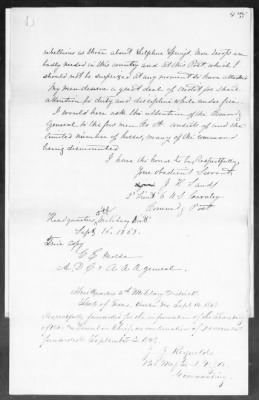 rebellious as those about Sulphur Springs. More troops are
badly needed in this country and at this Post which I
should not be surprised at any moment to have attacked
My men deserve a great deal of credit for strict
attention to duty and discipline while under fire.
I would here ask the attention of the Comm'g
General to the few men for duty and the
limited number of horses, many of the command
being dismounted
I have the honor to be, Respectfully
Your obedient Servant
J H Sands
Lieut 6 U S Cavalry
Comm'g Post
Headquarters 5th Military Dist
Sept 16, 1868.
True Copy
A. D. C & A. A. A. General.
Head Quarters 5th Military District
State of Texas, Sept 16
Respectfully forwarded for the information of the
of
forwarded September 2
J. J. Reynolds
Bvt Maj Genl U.S.A.
Commanding